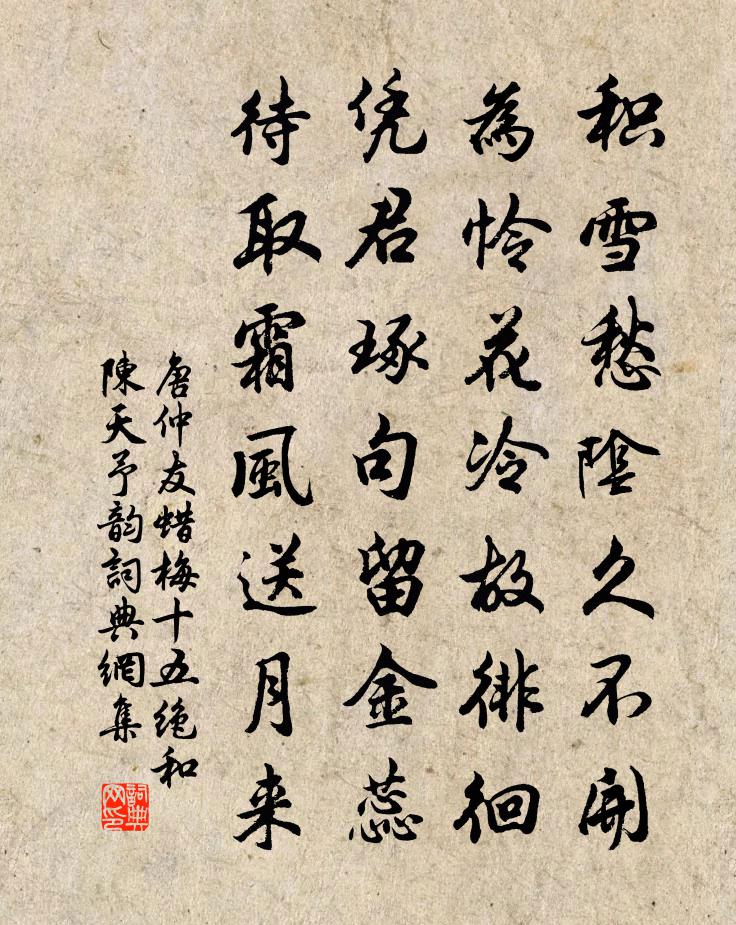 积雪愁陰久不開
為怜花冷故徘徊
凭君琢句留金蕊
待取霜風送月来
唐仲友蜡梅十五絶和
陳天予韵詞典網集
詞典网印